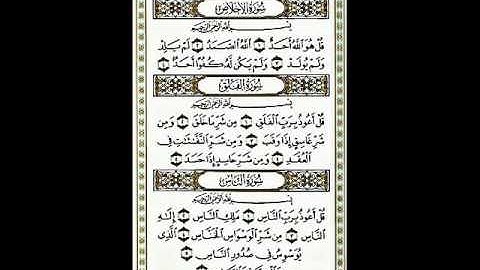 سُورَةُ الإِخْلَاصِ
بِسْمِ اللَّهِ الرَّحْمَنِ الرَّحِيمِ
قُلْ هُوَ اللَّهُ أَحَدٌ ١ اللَّهُ الصَّمَدُ ٢ لَمْ يَلِدْ
وَلَمْ يُولَدْ ٣ وَلَمْ يَكُن لَّهُ كُفُوًا أَحَدٌ ٤
سُورَةُ الْفَلَقِ
بِسْمِ اللَّهِ الرَّحْمَنِ الرَّحِيمِ
قُلْ أَعُوذُ بِرَبِّ الْفَلَقِ ١ مِن شَرِّ مَا خَلَقَ ٢ وَمِن
شَرِّ غَاسِقٍ إِذَا وَقَبَ ٣ وَمِن شَرِّ النَّفَّاثَاتِ فِي
الْعُقَدِ ٤ وَمِن شَرِّ حَاسِدٍ إِذَا حَسَدَ ٥
سُورَةُ النَّاسِ
بِسْمِ اللَّهِ الرَّحْمَنِ الرَّحِيمِ
قُلْ أَعُوذُ بِرَبِّ النَّاسِ ١ مَلِكِ النَّاسِ ٢ إِلَهِ
النَّاسِ ٣ مِن شَرِّ الْوَسْوَاسِ الْخَنَّاسِ ٤ الَّذِي
يُوَسْوِسُ فِي صُدُورِ النَّاسِ ٥